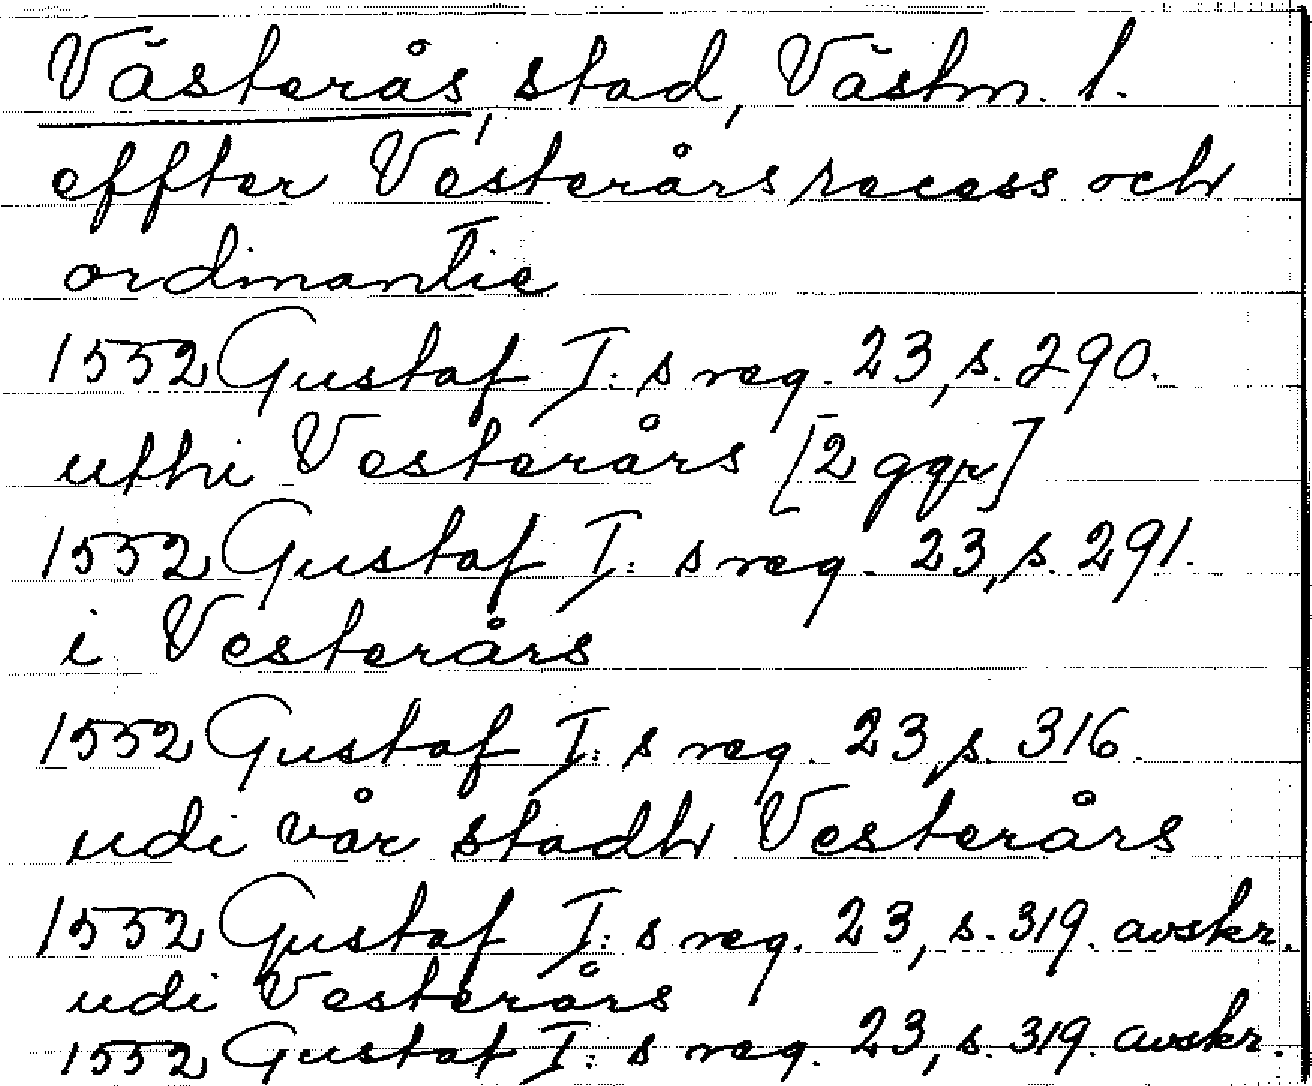 Västerås, stad, Västm. l.
effter Vesterårs recess och
ordinantie
1552 Gustaf I:s reg. 23, s. 290.
uthi Vesterårs [2 ggr]
1552 Gustaf I:s reg. 23, s. 291.
i Vesterårs
1552 Gustaf I:s reg. 23, s. 316.
udi vår stadh Vesterårs
1552 Gustaf I:s reg. 23, s. 319. avskr.
udi Vesterårs
1552 Gustaf I:s reg. 23, s. 319. avskr.